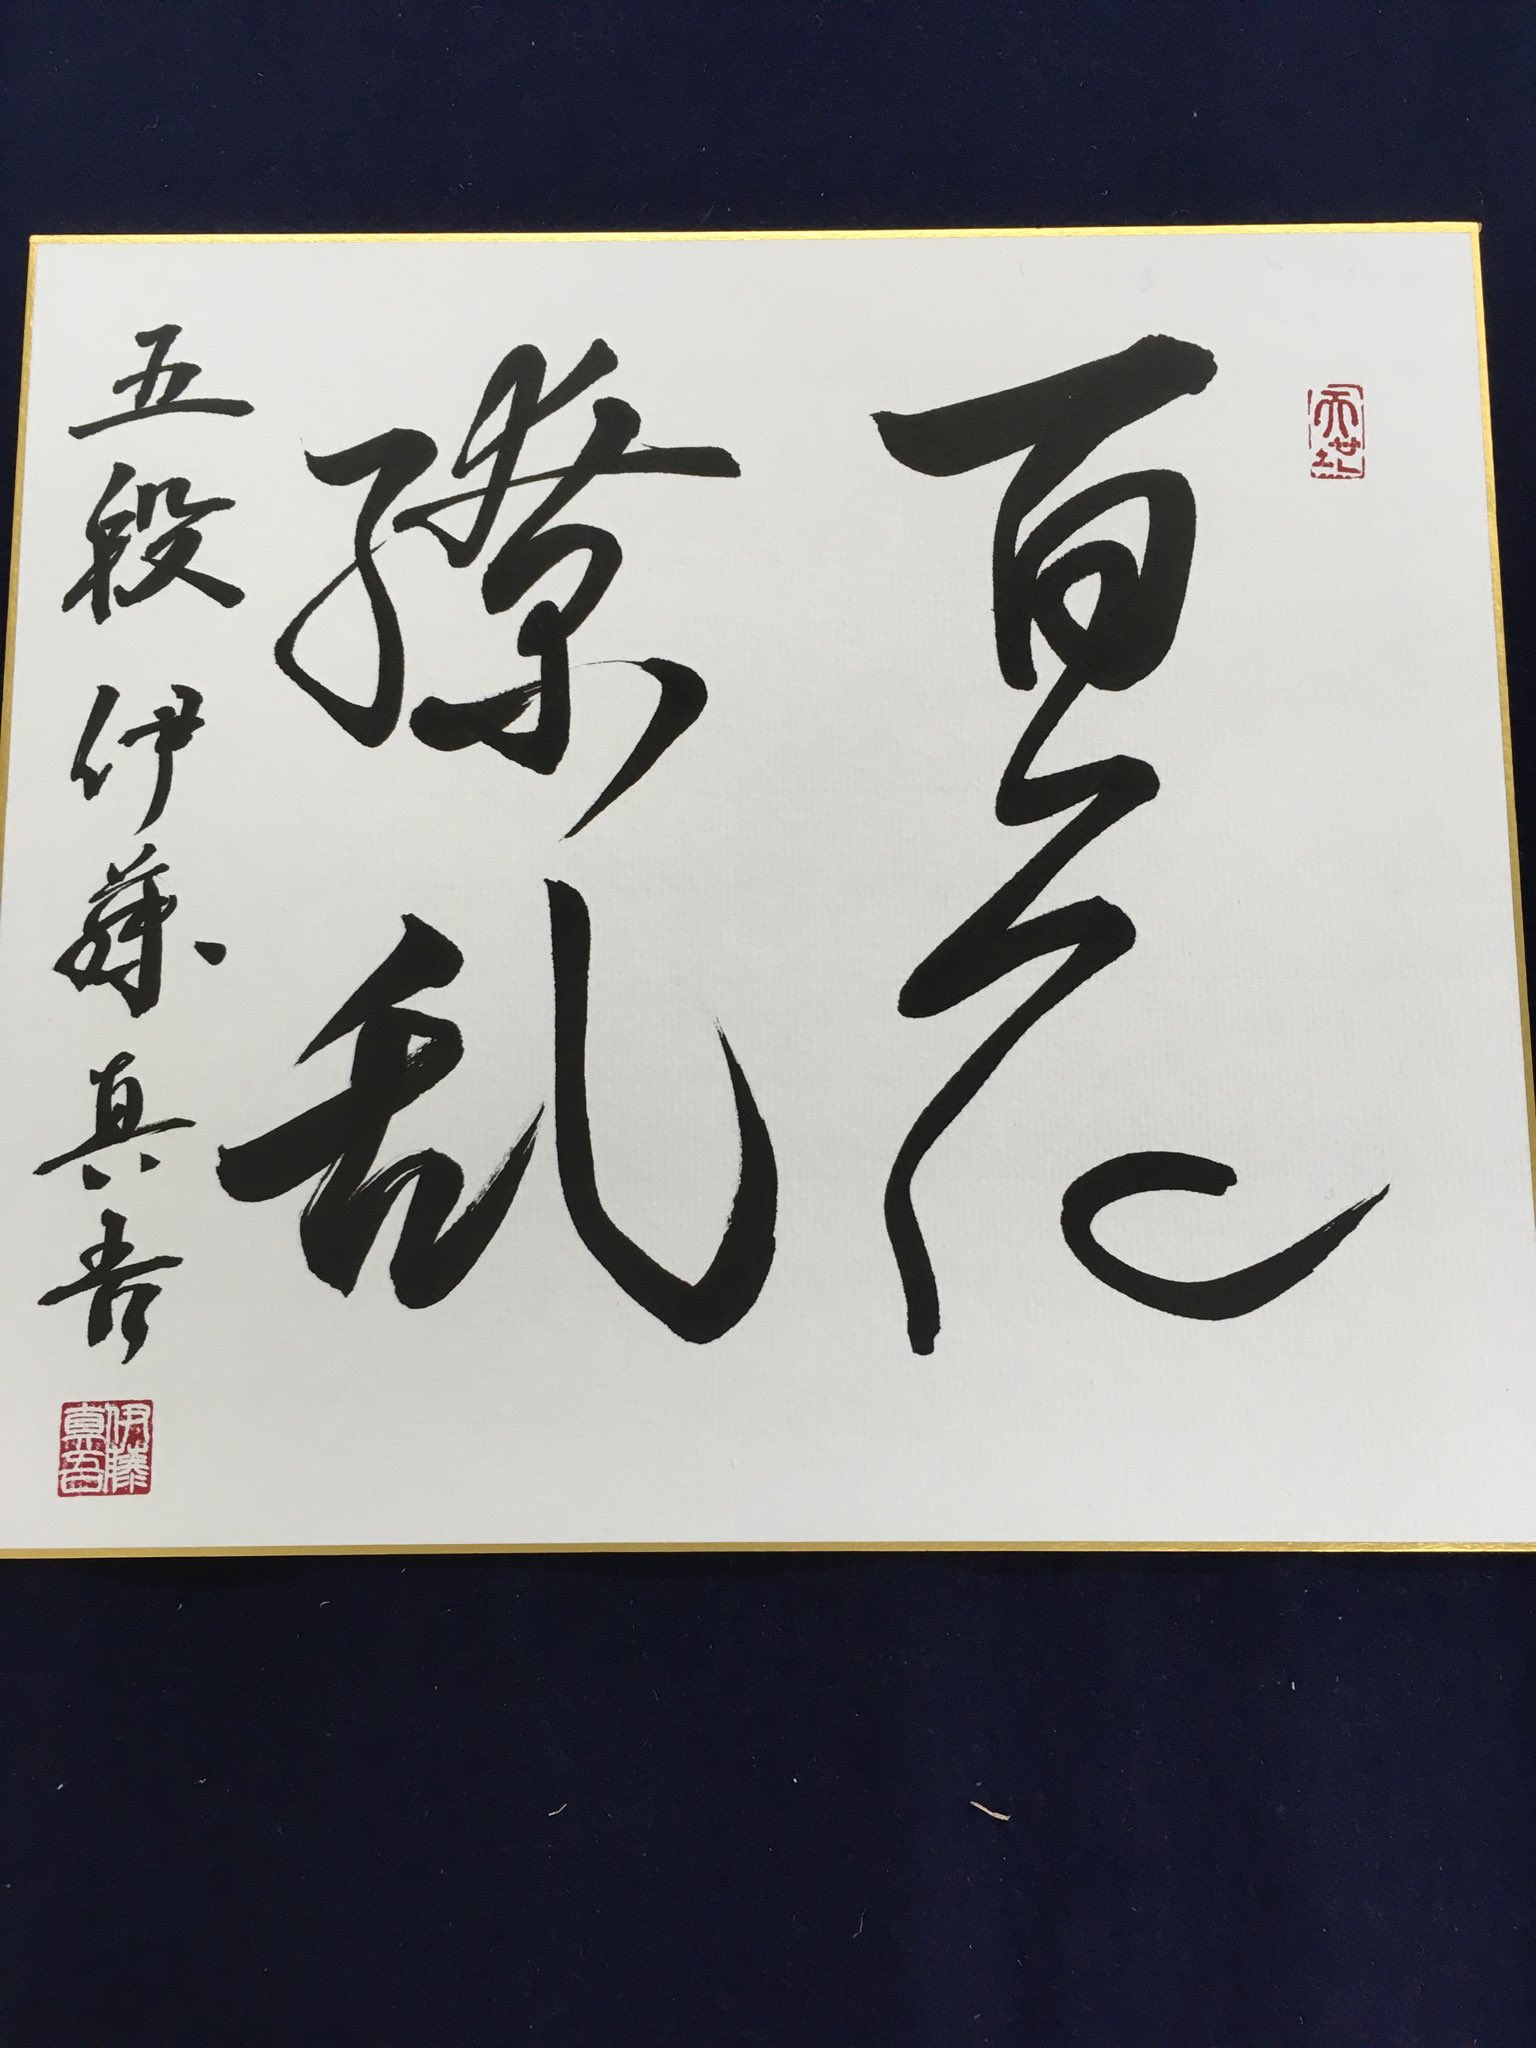 百花
繚乱
五段 伊藤真吾
伊藤
真吾